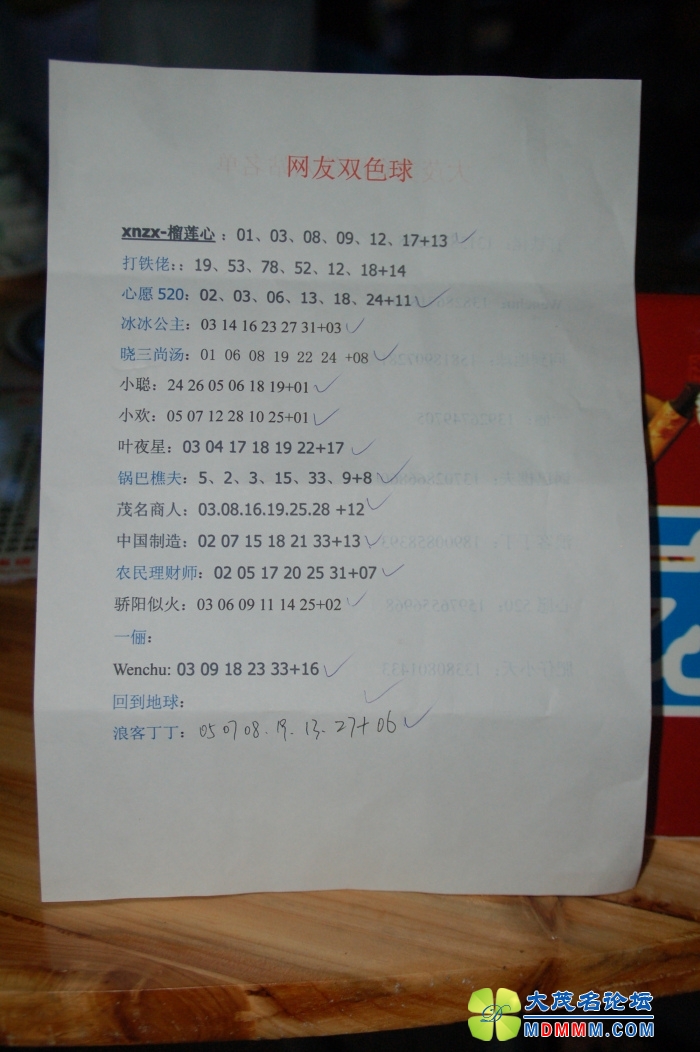 网友双色球
xnzx-榴莲心：01、03、08、09、12、17+13
打铁佬：：19、53、78、52、12、18+14
心愿520：02、03、06、13、18、24+11
冰冰公主：03 14 16 23 27 31+03
晓三尚汤：01 06 08 19 22 24 +08
小聪：24 26 05 06 18 19+01
小欢：05 07 12 28 10 25+01
叶夜星：03 04 17 18 19 22+17
锅巴樵夫：5、2、3、15、33、9+8
茂名商人：03.08.16.19.25.28 +12
中国制造：02 07 15 18 21 33+13
农民理财师：02 05 17 20 25 31+07
骄阳似火：03 06 09 11 14 25+02
一俪：
Wenchu: 03 09 18 23 33+16
回到地球：
浪客丁丁：05 07 08. 19. 13. 27+06
大茂名论坛
MDMMM.COM